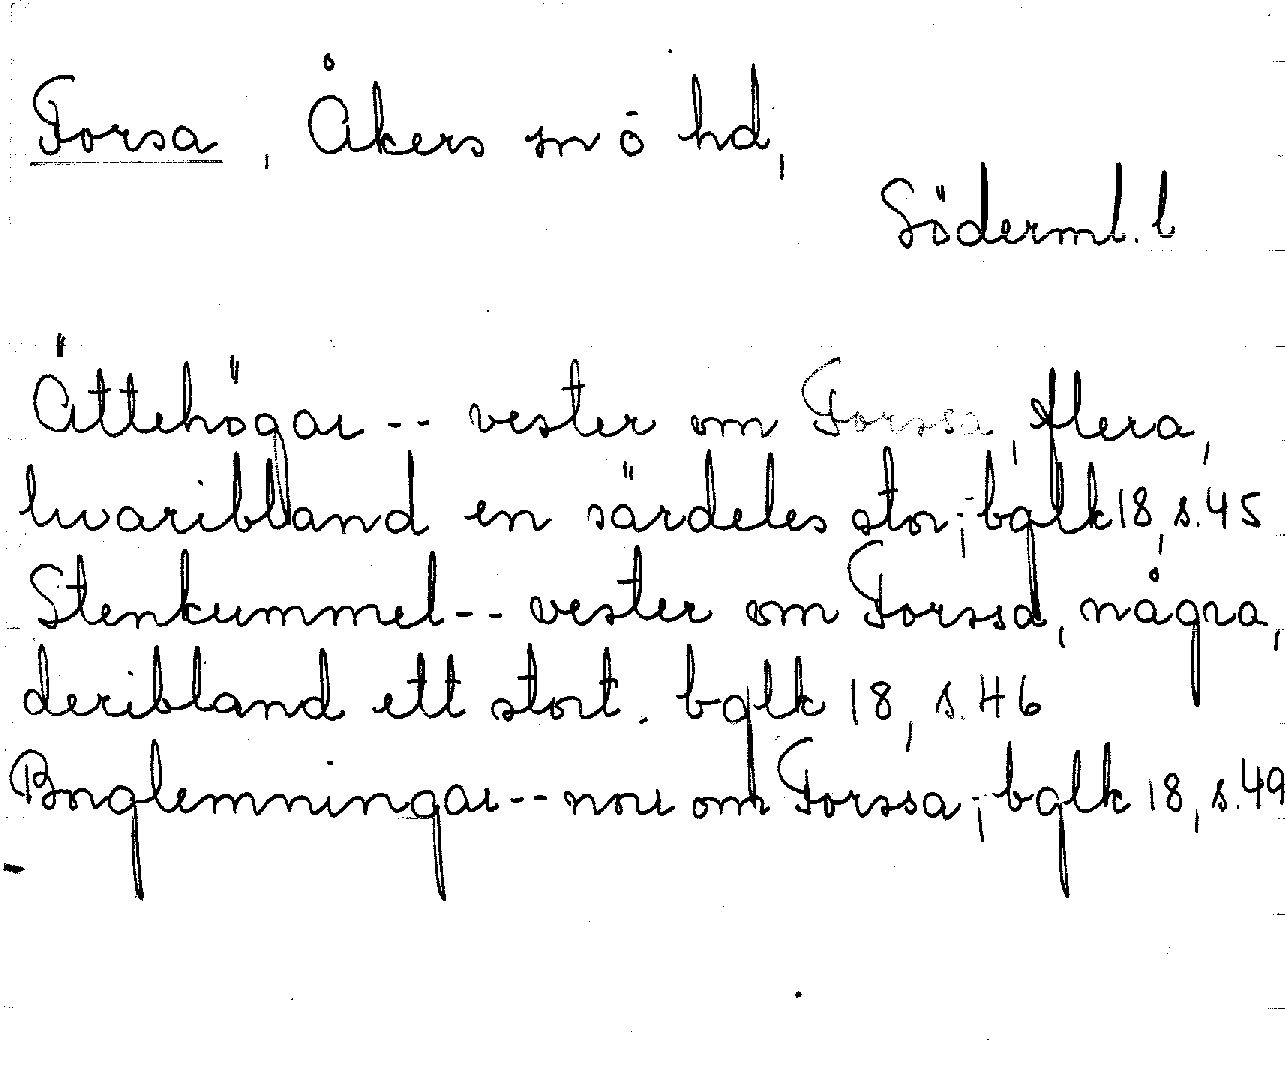 Forsa, Åkers sn o hd,
Söderml. l
Ättehögar -- vester om Forssa, flera,
hvaribland en särdeles stor; bglk 18, s. 45
Stenkummel -- vester om Forssa, några,
deribland ett stort. bglk 18, s. 46
Borglemningar -- norr om Forssa; bglk 18, s. 49